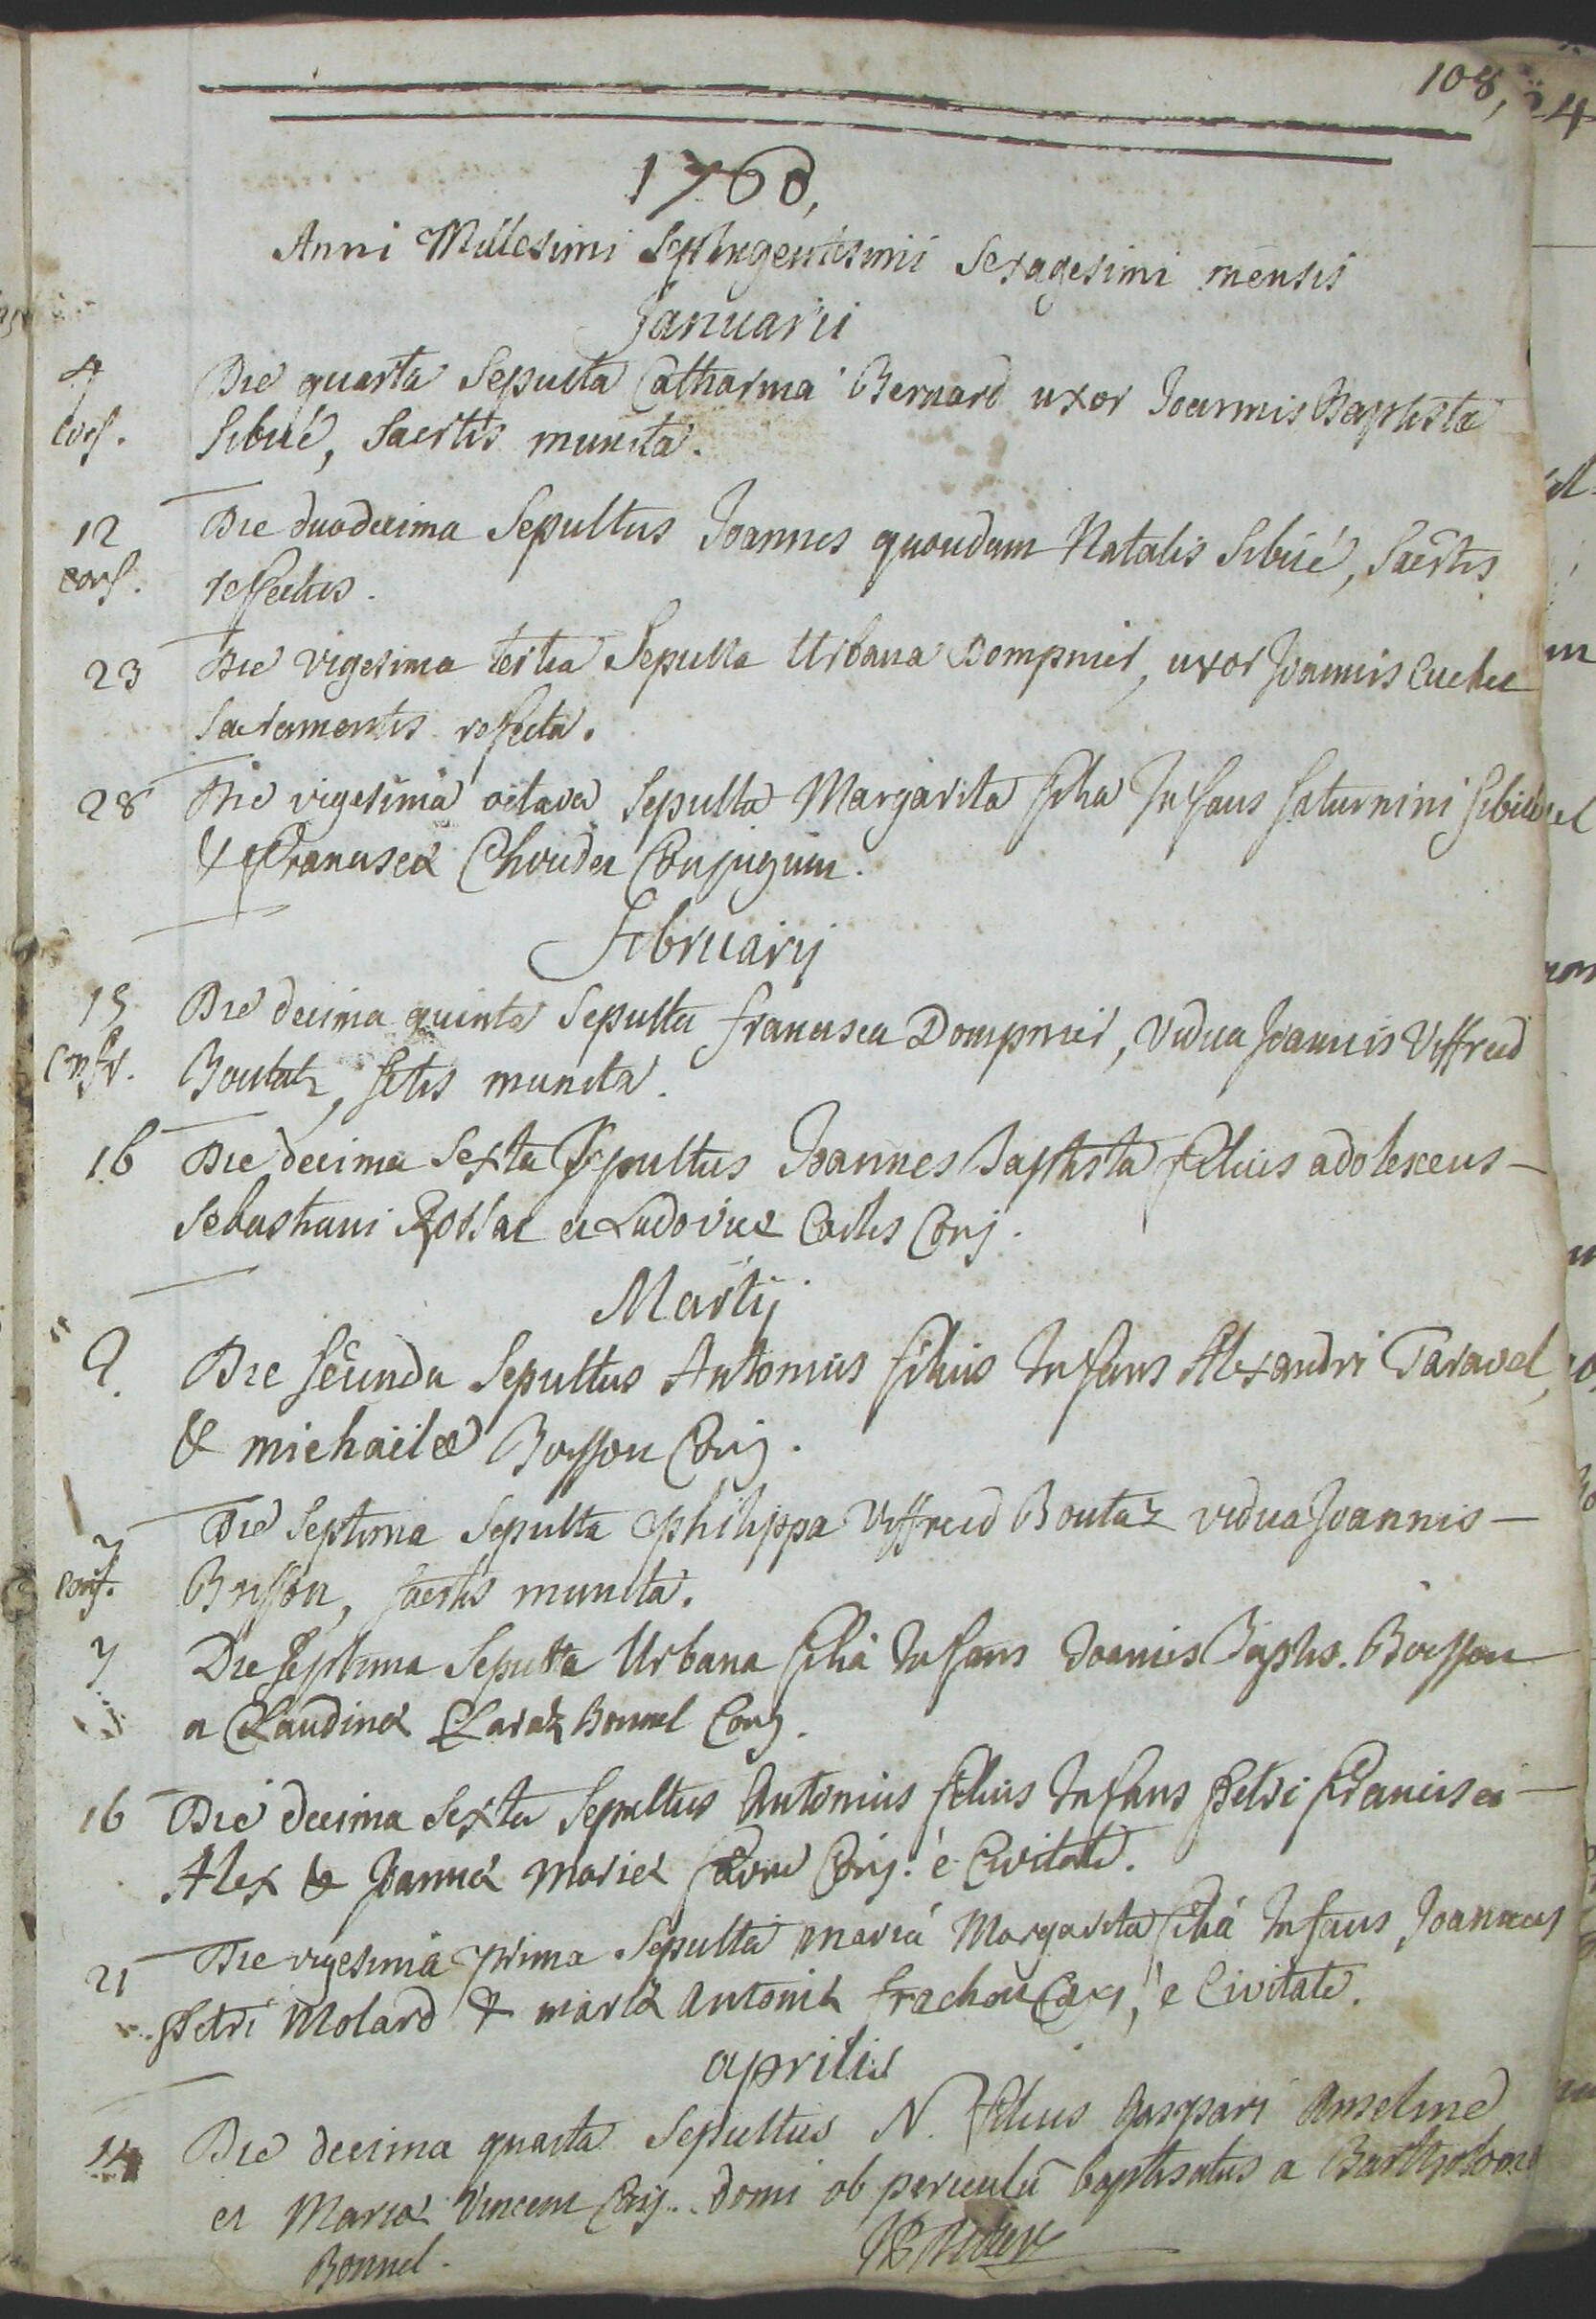 108,
1760,
Anni Millesimi Septingentesimi Sexagesimi mensis
Januarii
4 Die quarta Sepulta Catharina Bernard uxor Joannis Baptistæ
conf. Sibué, Sacrtis munita.
12 Die duodecima Sepultus Joannes quondam Natalis Sibué, Sacrtis
conf. refectus.
23 Die vigesima tertia Sepulta Urbana Dompnier, uxor Joannis Cuchet
Sacramentis refecta.
28 Die vigesima octava Sepulta Margarita filia Infans Saturnini Sibué
& Franciscæ Choudet Conjugum.
Februarij
15 Die decima quinta Sepulta francisca Dompnier, Vidua Joannis Viffred
confr. Boutaz, sctis munita.
16 Die decima Sexta Sepultus Joannes Baptista filius adolescens
Sebastiani et Ludovicæ Conj.
Martij
2. Die secunda Sepultus Antonius filius Infans Alexandri Taravel,
& michaelæ Boisson Conj.
7 Die Septima Sepulta philippa Viffred Boutaz vidua Joannis
conf. Buisson, sacrtis munita.
7 Die septima Sepulta Urbana filia Infans Joannis Baptis. Boisson
et Claudinæ Claraz Bonnel Conj.
16 Die decima Sexta Sepultus Antonius filius Infans petri francisci
Alex & Joannæ mariæ favre Conj. è Civitate.
21 Die vigesima prima Sepulta maria Margarita filia Infans Joannis
petri Molard & mariæ Antoniæ frachon Conj, è Civitate.
aprilis
14 Die decima quarta Sepultus N. filius Gaspari Anselme
et Mariæ Vincent Conj. domi ob periculū baptisatus a Bartholomeo
Bonnel.